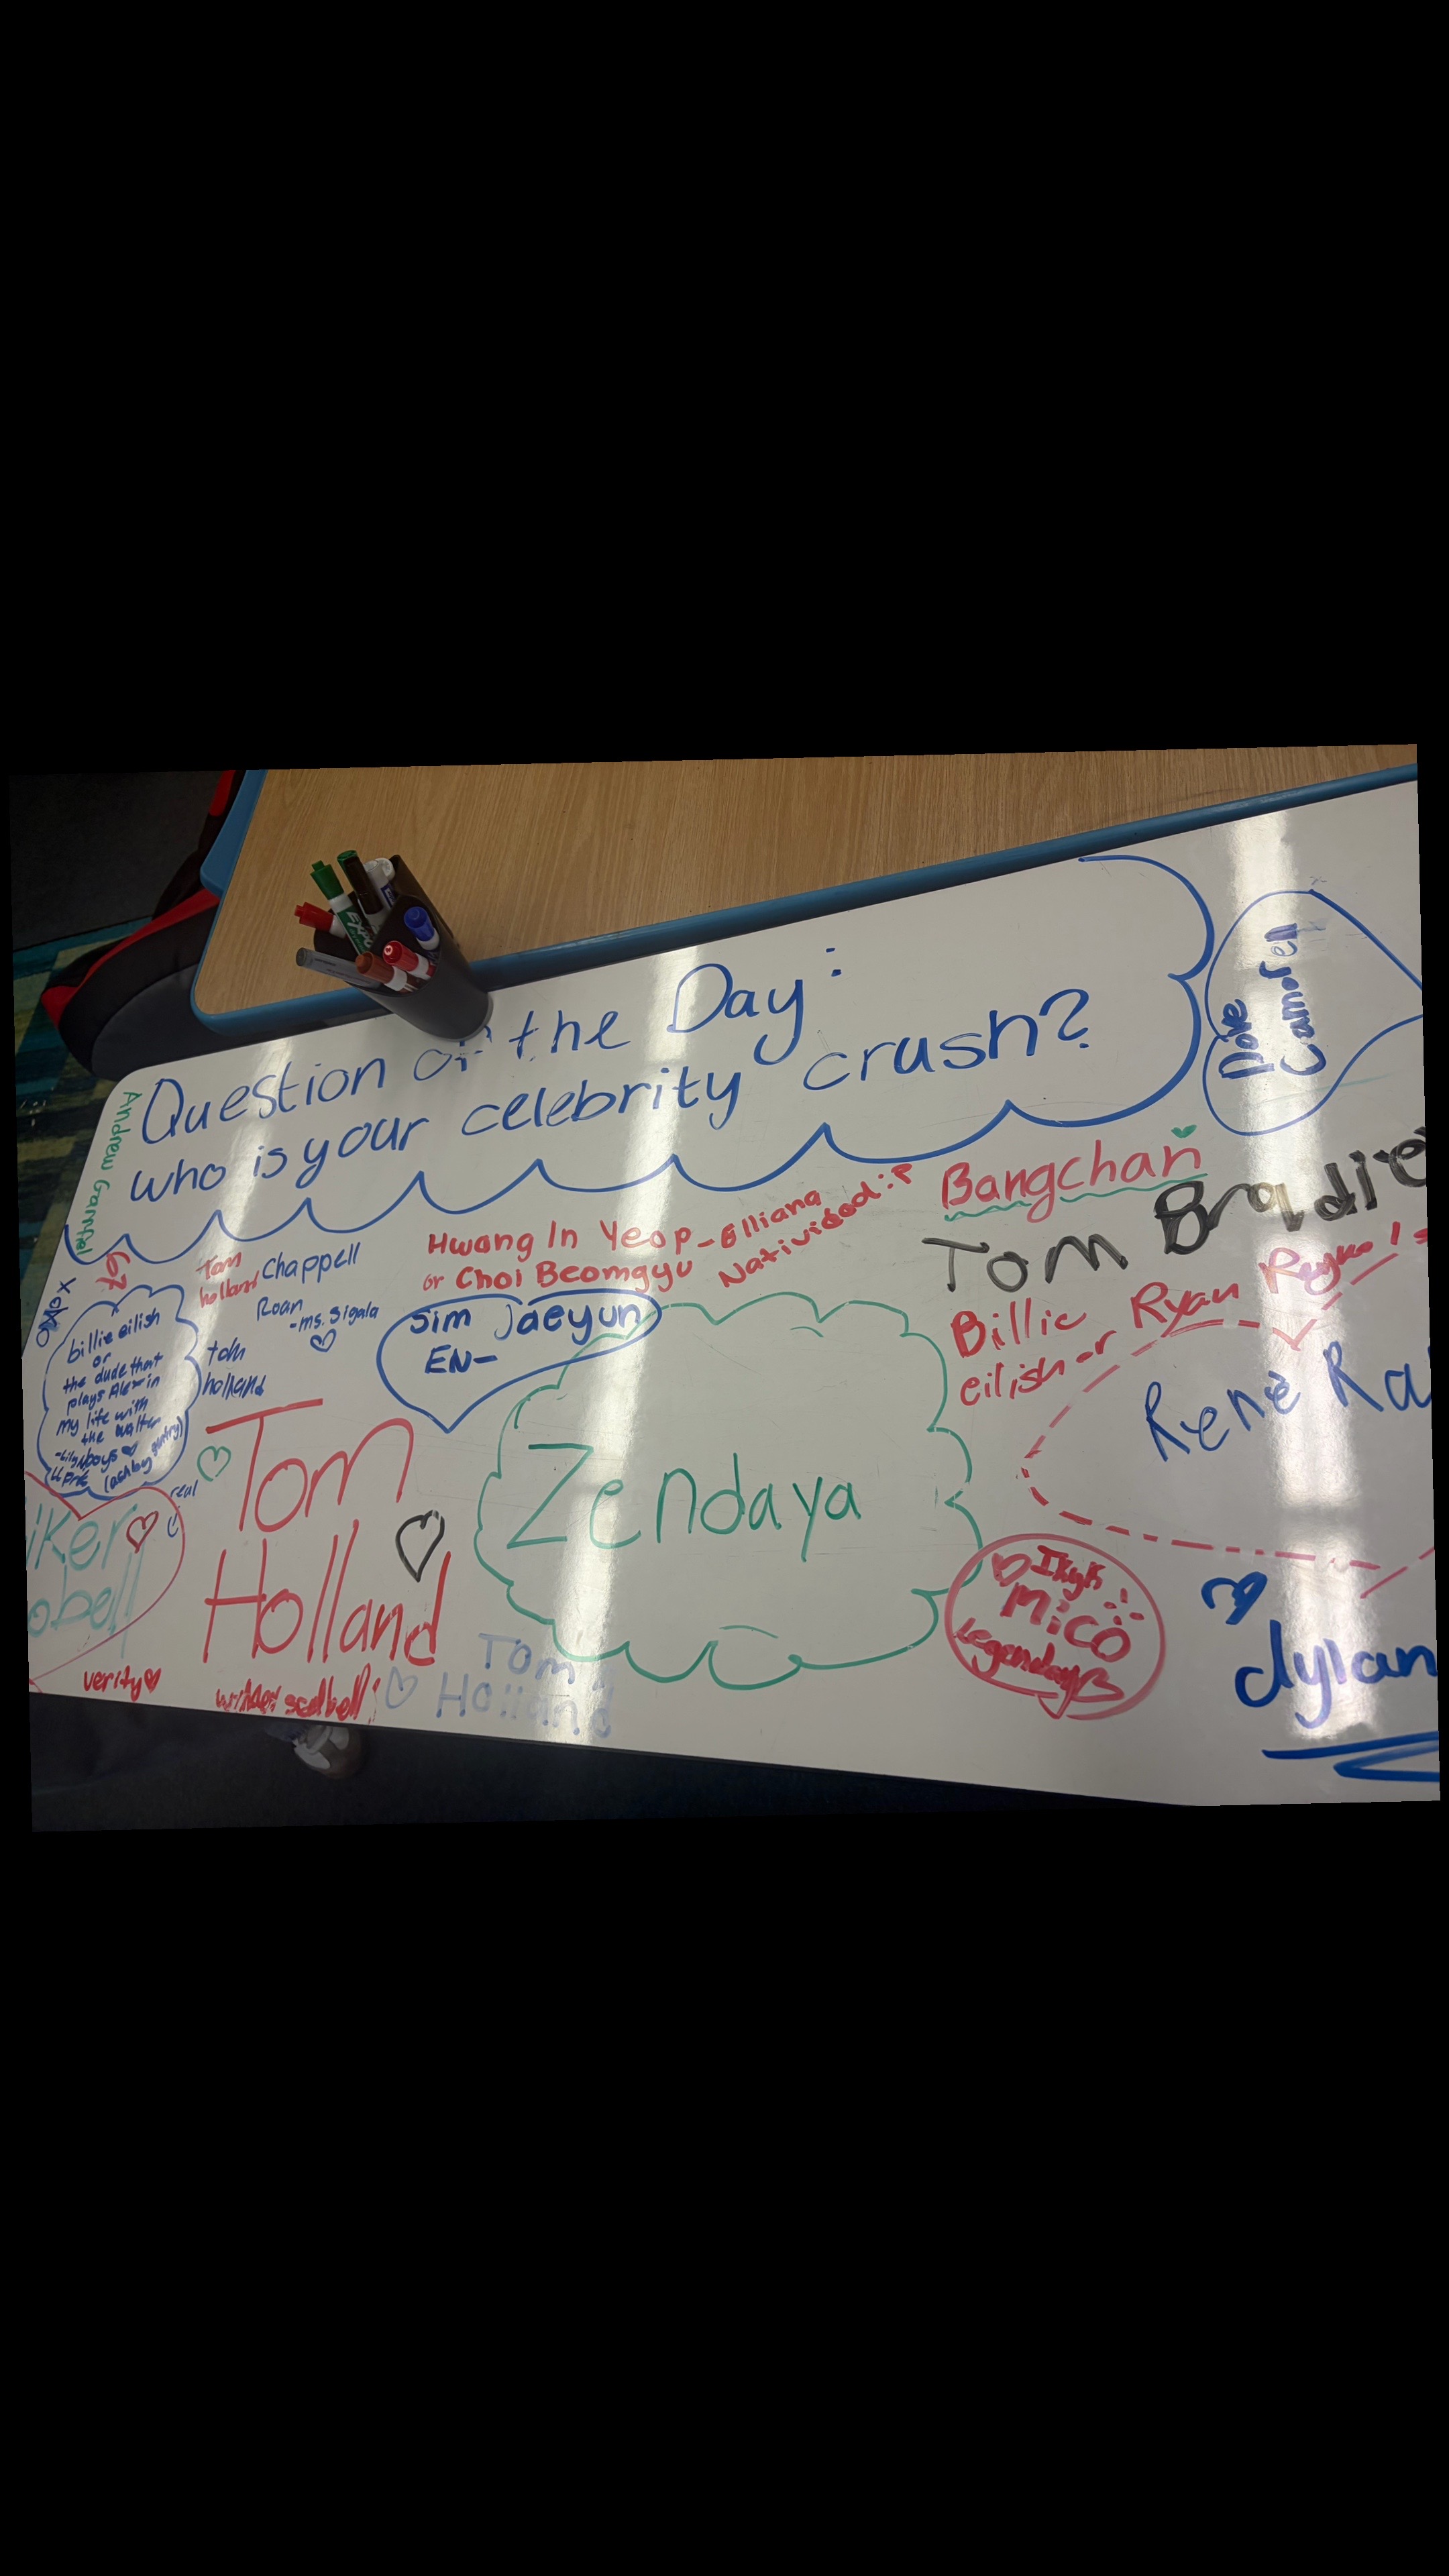 Question of the Day:
who is your celebrity crush?
Dove
Cameron
Andrew Garfiel
67
xoxo
billie eilish
or
the dude that
plays Alex in
my life with
the walter
boys
(ashby gentry)
real
Tom
holland
Chappell
Roan
-ms. Sigala
tom
holland
Hwang In Yeop - Elliana
or Choi Beomgyu Natividad :P
Sim Jaeyun
EN-
Bangchan
Tom Bradie
Billie
eilish or Ryan
Rene Ra
Zendaya
Tom
Holland
iker
obell
verity
Tom
Holland
Ikyk
Mico
legenday
dylan
EXPO